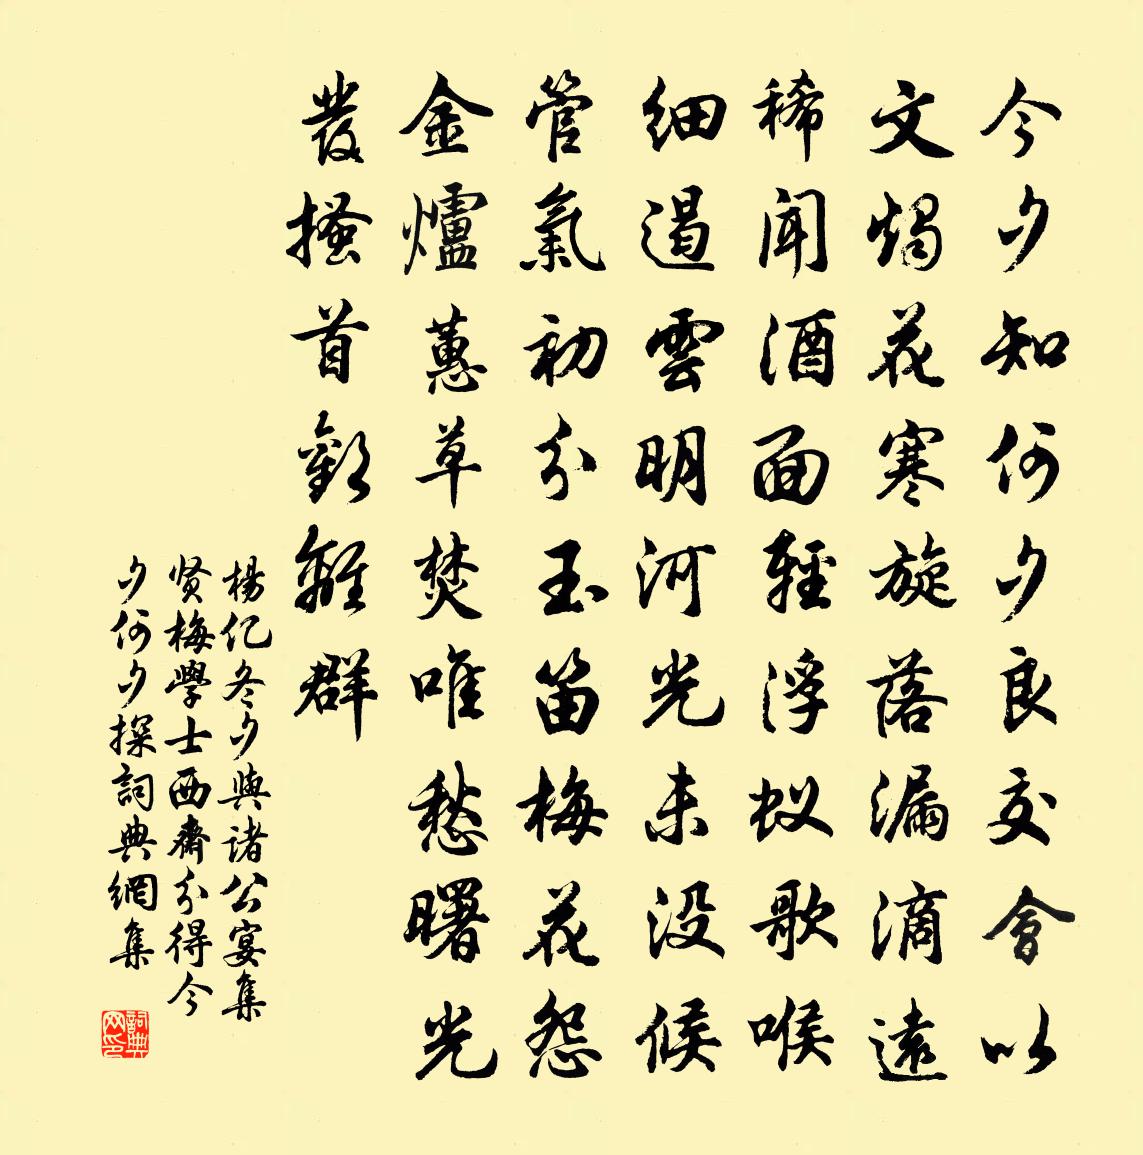 今夕知何夕良交會以
文燭花寒旋落漏滴遠
稀聞酒面輕浮蚁歌喉
细遏雲明河光未没候
管氣初分玉笛梅花怨
金爐蕙草焚唯愁曙光
發搔首歎離群
楊亿冬夕與諸公宴集
贤梅學士西齋分得今
夕何夕探詞典網集
詞典网印